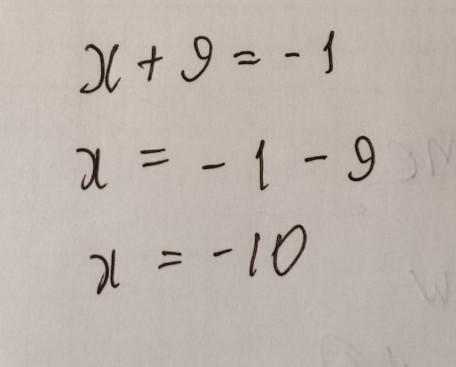 x + 9 = - 1
x = - 1 - 9
x = - 10